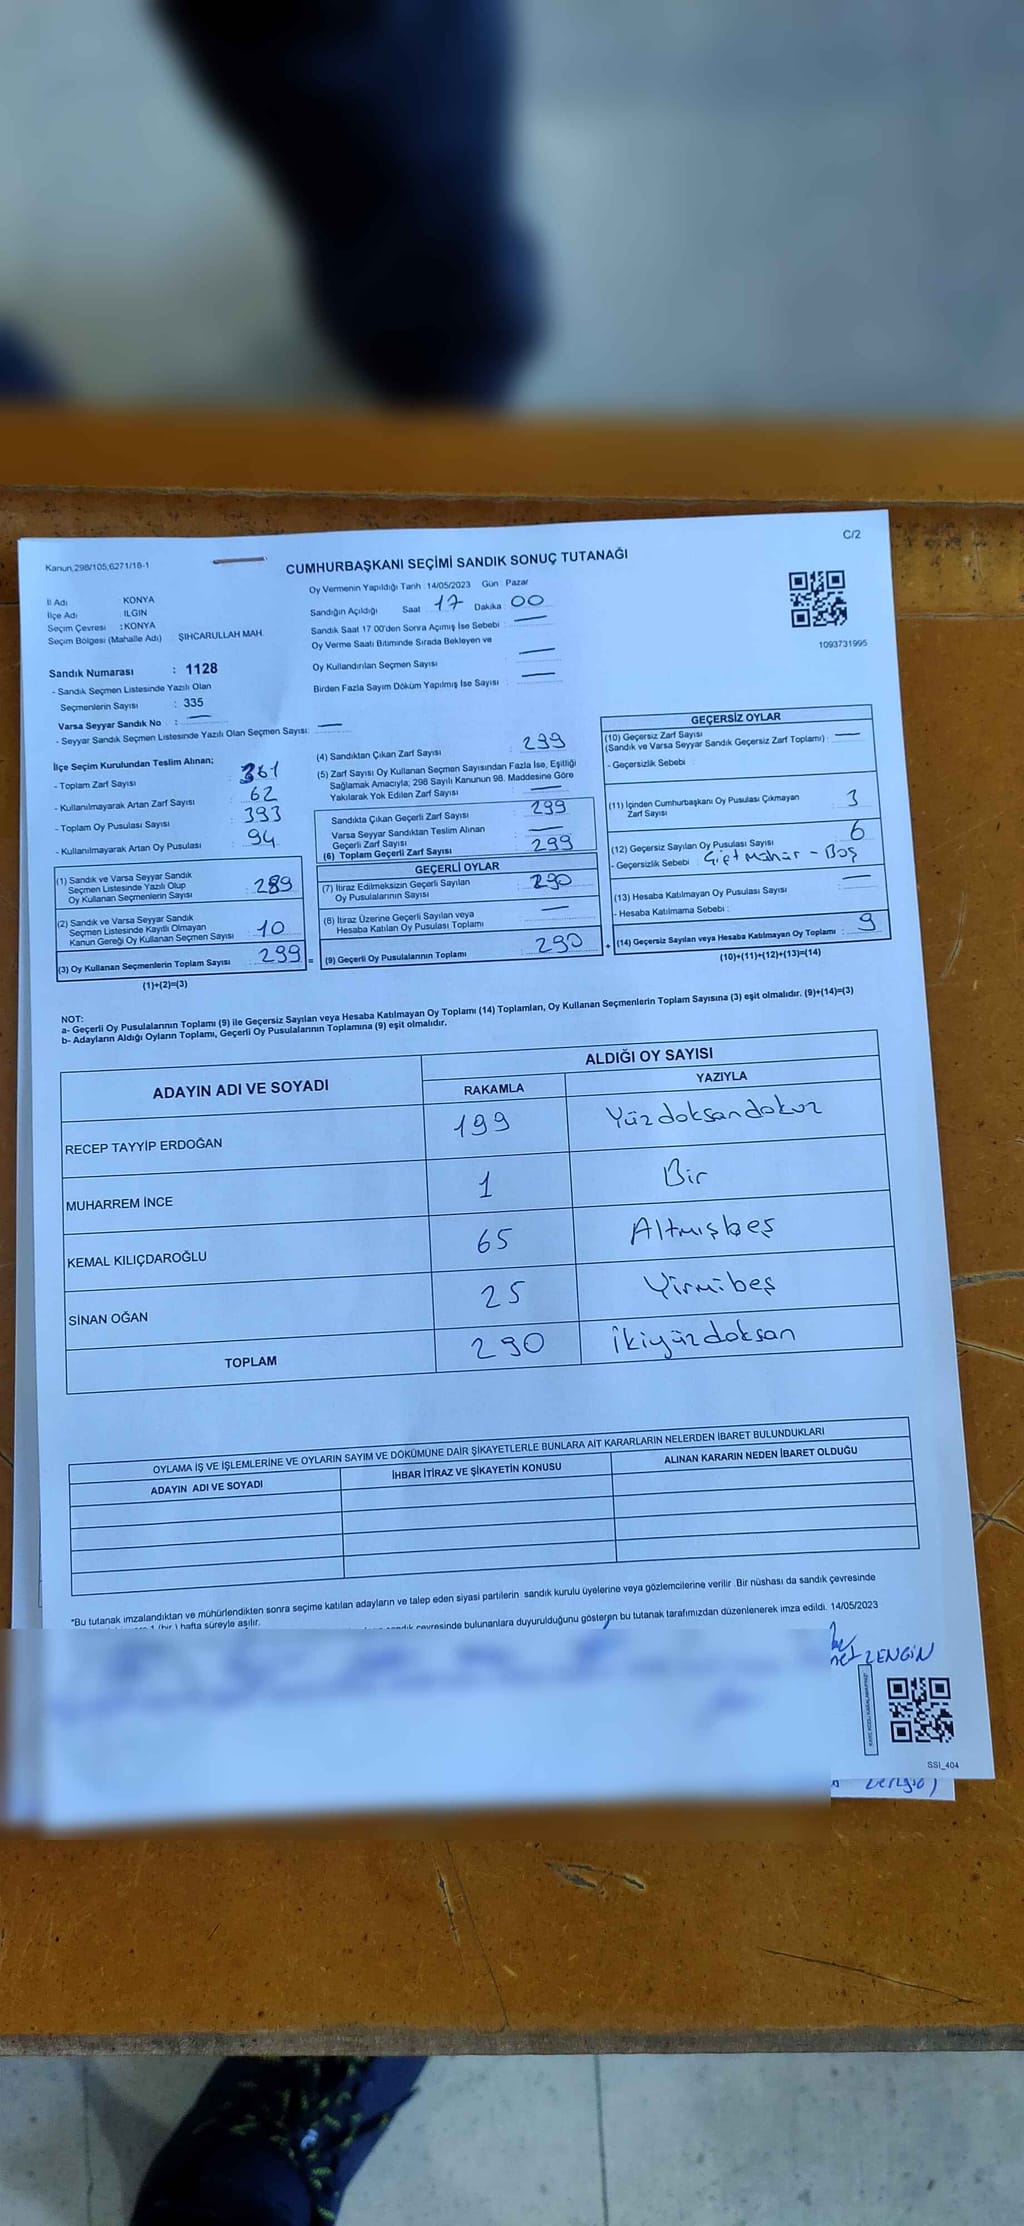 C/2
Kanun,298/105;6271/18-1
CUMHURBAŞKANI SEÇİMİ SANDIK SONUÇ TUTANAĞI
İl Adı KONYA
İlçe Adı ILGIN
Seçim Çevresi : KONYA
Seçim Bölgesi (Mahalle Adı) ŞIHCARULLAH MAH.
Oy Vermenin Yapıldığı Tarih 14/05/2023 Gün Pazar
Sandığın Açıldığı Saat 17 Dakika 00
Sandık Saat 17 00'den Sonra Açımış İse Sebebi :
Oy Verme Saati Bitiminde Sırada Bekleyen ve
Oy Kullandırılan Seçmen Sayısı
Birden Fazla Sayım Döküm Yapılmış İse Sayısı :
1093731995
Sandık Numarası : 1128
- Sandık Seçmen Listesinde Yazılı Olan
Seçmenlerin Sayısı : 335
Varsa Seyyar Sandık No :
- Seyyar Sandık Seçmen Listesinde Yazılı Olan Seçmen Sayısı:
İlçe Seçim Kurulundan Teslim Alınan;
- Toplam Zarf Sayısı : 361
- Kullanılmayarak Artan Zarf Sayısı : 62
- Toplam Oy Pusulası Sayısı : 393
- Kullanılmayarak Artan Oy Pusulası : 94
(1) Sandık ve Varsa Seyyar Sandık
Seçmen Listesinde Yazılı Olup
Oy Kullanan Seçmenlerin Sayısı : 289
(2) Sandık ve Varsa Seyyar Sandık
Seçmen Listesinde Kayıtlı Olmayan
Kanun Gereği Oy Kullanan Seçmen Sayısı : 10
(3) Oy Kullanan Seçmenlerin Toplam Sayısı : 299 =
(1)+(2)=(3)
(4) Sandıktan Çıkan Zarf Sayısı : 299
(5) Zarf Sayısı Oy Kullanan Seçmen Sayısından Fazla İse, Eşitliği
Sağlamak Amacıyla; 298 Sayılı Kanunun 98. Maddesine Göre
Yakılarak Yok Edilen Zarf Sayısı
Sandıkta Çıkan Geçerli Zarf Sayısı : 299
Varsa Seyyar Sandıktan Teslim Alınan
Geçerli Zarf Sayısı :
(6) Toplam Geçerli Zarf Sayısı : 299
GEÇERLİ OYLAR
(7) İtiraz Edilmeksizin Geçerli Sayılan
Oy Pusulalarının Sayısı : 290
(8) İtiraz Üzerine Geçerli Sayılan veya
Hesaba Katılan Oy Pusulası Toplamı :
(9) Geçerli Oy Pusulalarının Toplamı : 290 +
GEÇERSİZ OYLAR
(10) Geçersiz Zarf Sayısı
(Sandık ve Varsa Seyyar Sandık Geçersiz Zarf Toplamı) :
- Geçersizlik Sebebi :
(11) İçinden Cumhurbaşkanı Oy Pusulası Çıkmayan
Zarf Sayısı : 3
(12) Geçersiz Sayılan Oy Pusulası Sayısı : 6
- Geçersizlik Sebebi : Çift Mühür - Boş
(13) Hesaba Katılmayan Oy Pusulası Sayısı
- Hesaba Katılmama Sebebi :
(14) Geçersiz Sayılan veya Hesaba Katılmayan Oy Toplamı : 9
(10)+(11)+(12)+(13)=(14)
NOT:
a- Geçerli Oy Pusulalarının Toplamı (9) ile Geçersiz Sayılan veya Hesaba Katılmayan Oy Toplamı (14) Toplamları, Oy Kullanan Seçmenlerin Toplam Sayısına (3) eşit olmalıdır. (9)+(14)=(3)
b- Adayların Aldığı Oyların Toplamı, Geçerli Oy Pusulalarının Toplamına (9) eşit olmalıdır.
ADAYIN ADI VE SOYADI ALDIĞI OY SAYISI
RAKAMLA YAZIYLA
RECEP TAYYİP ERDOĞAN 199 Yüzdoksandokuz
MUHARREM İNCE 1 Bir
KEMAL KILIÇDAROĞLU 65 Altmışbeş
SİNAN OĞAN 25 Yirmibeş
TOPLAM 290 İkiyüzdoksan
OYLAMA İŞ VE İŞLEMLERİNE VE OYLARIN SAYIM VE DÖKÜMÜNE DAİR ŞİKAYETLERLE BUNLARA AİT KARARLARIN NELERDEN İBARET BULUNDUKLARI
ADAYIN ADI VE SOYADI İHBAR İTİRAZ VE ŞİKAYETİN KONUSU ALINAN KARARIN NEDEN İBARET OLDUĞU
*Bu tutanak imzalandıktan ve mühürlendikten sonra seçime katılan adayların ve talep eden siyasi partilerin sandık kurulu üyelerine veya gözlemcilerine verilir. Bir nüshası da sandık çevresinde
1 (bir) hafta süreyle asılır.
sandık çevresinde bulunanlara duyurulduğunu gösteren bu tutanak tarafımızdan düzenlenerek imza edildi. 14/05/2023
ZENGİN
SSI_404